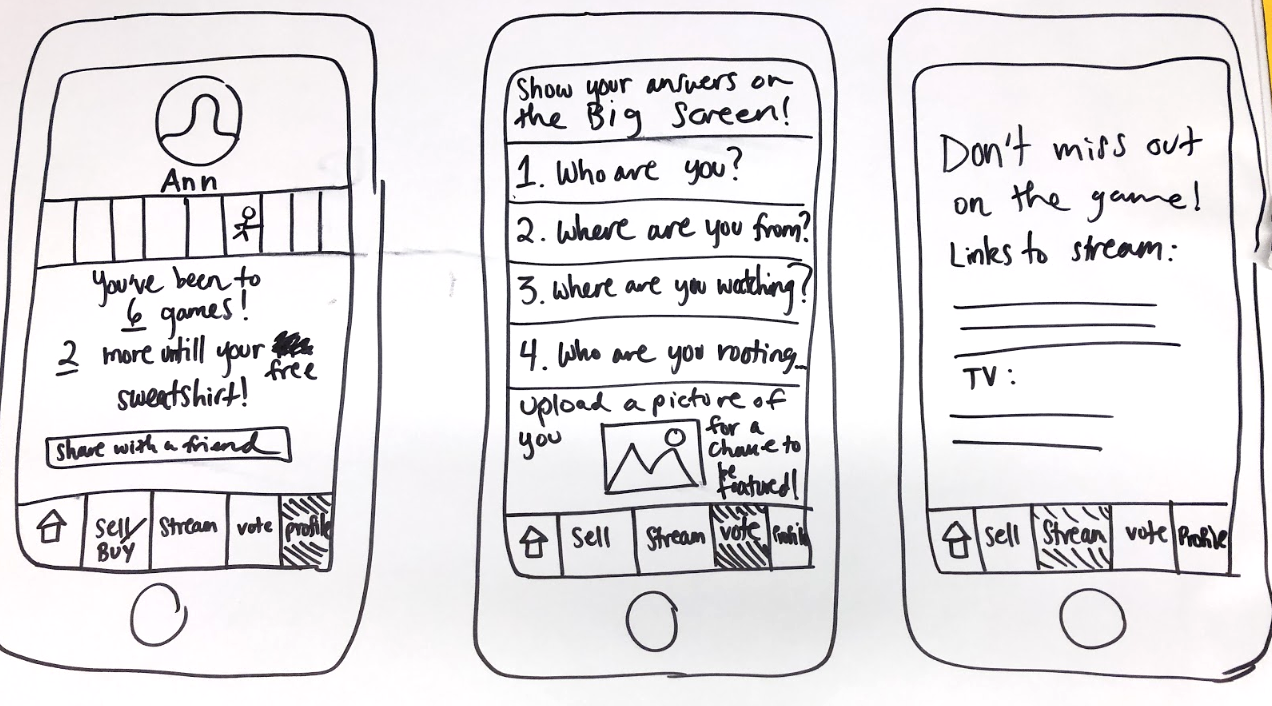 Ann
You've been to
6 games!
2 more untill your
free
sweatshirt!
Share with a friend
Sell/
BUY
Stream
vote
profile
Show your answers on
the Big Screen!
1. Who are you?
2. Where are you from?
3. Where are you watching?
4. Who are you rooting...
Upload a picture of
you
for a
chance to
be
featured!
Sell
Stream
vote
Profile
Don't miss out
on the game!
Links to stream:
TV:
Sell
Stream
vote
Profile